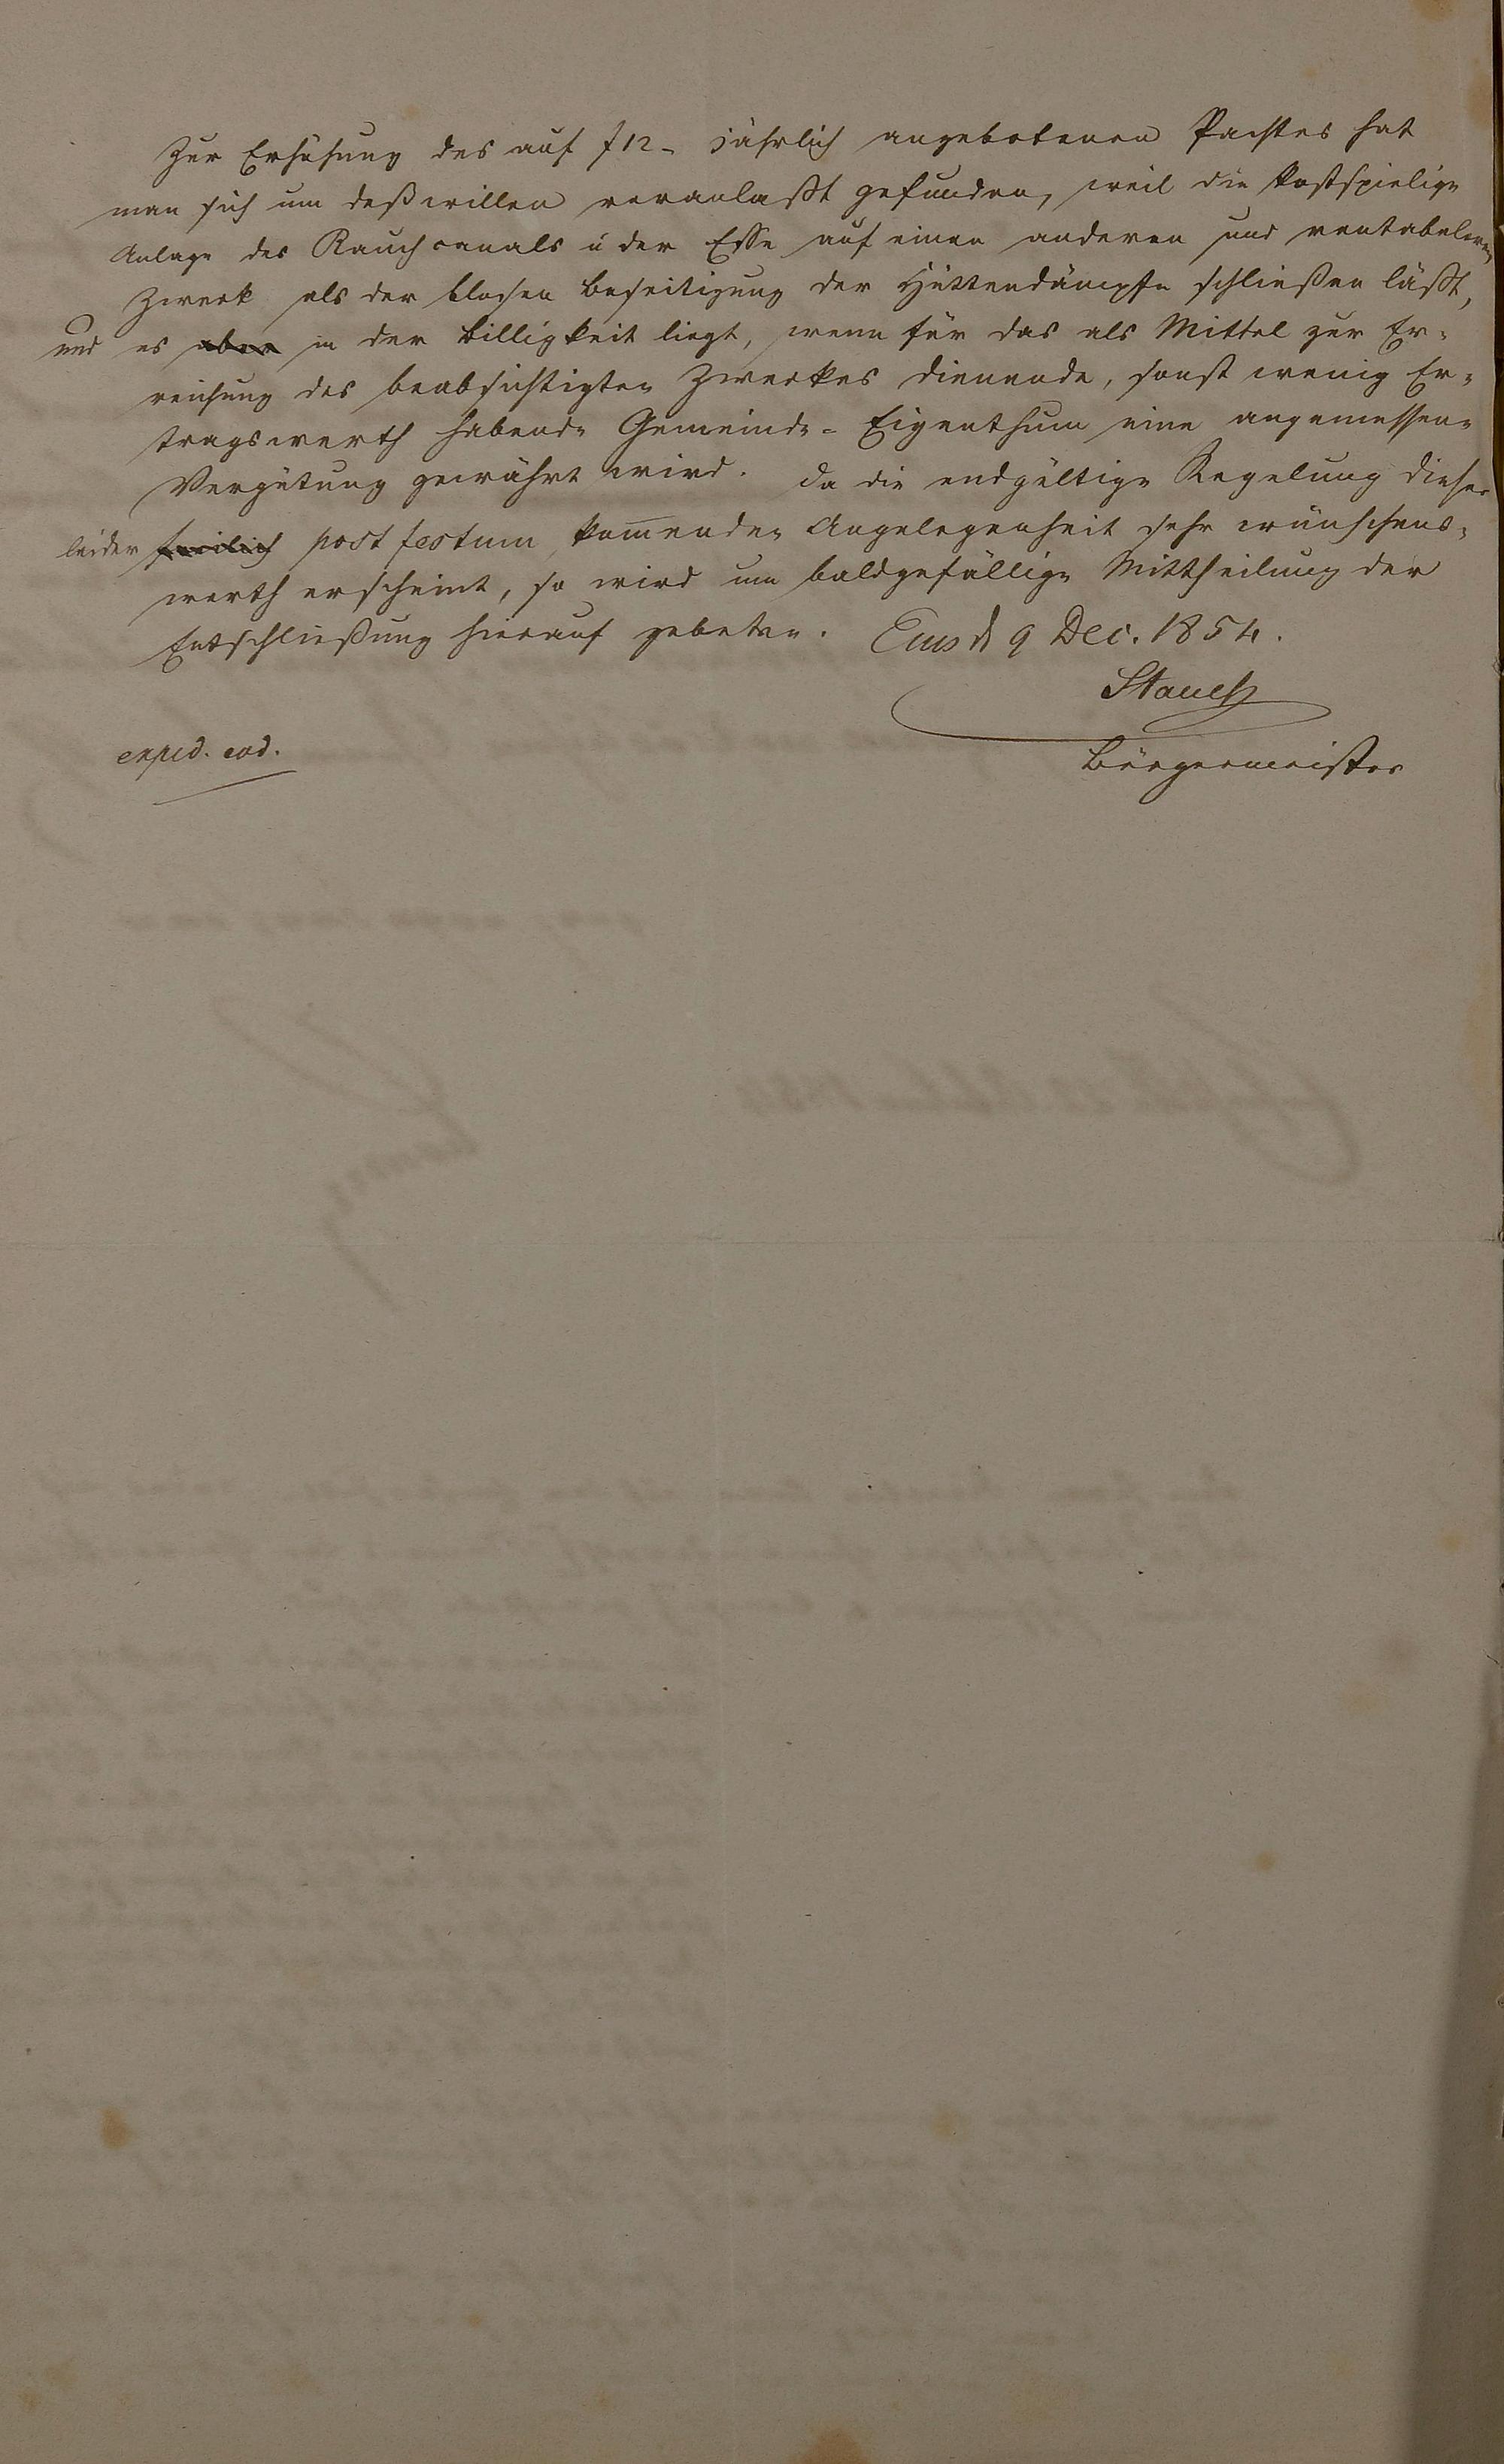 Zur Erhöhung des auf f 12 - jährlich angebotenen Pachtes hat
man sich um deßwillen veranlaßt gefunden, weil die kostspielige
Anlage des Rauchcanals u der Esse auf einen anderen und rentabeleren
Zweck als der blosen Beseitigung der Hüttendämpfe schließen läßt,
und es aber in der Billigkeit liegt, wenn für das als Mittel zur Er-
reichung des beabsichtigten Zweckes dienende, sonst wenig Er-
tragswerth habende Gemeinde-Eigenthum eine angemessene
Vergütung gewährt wird. Da die endgültige Regelung dieser
leider freilich post festum komenden Angelegenheit sehr wünschens-
werth erscheint, so wird um baldgefällige Mittheilung der
Entschließung hierauf gebeten. Ems d 9 Dec. 1854.
Bürgermeister
exped. eod.